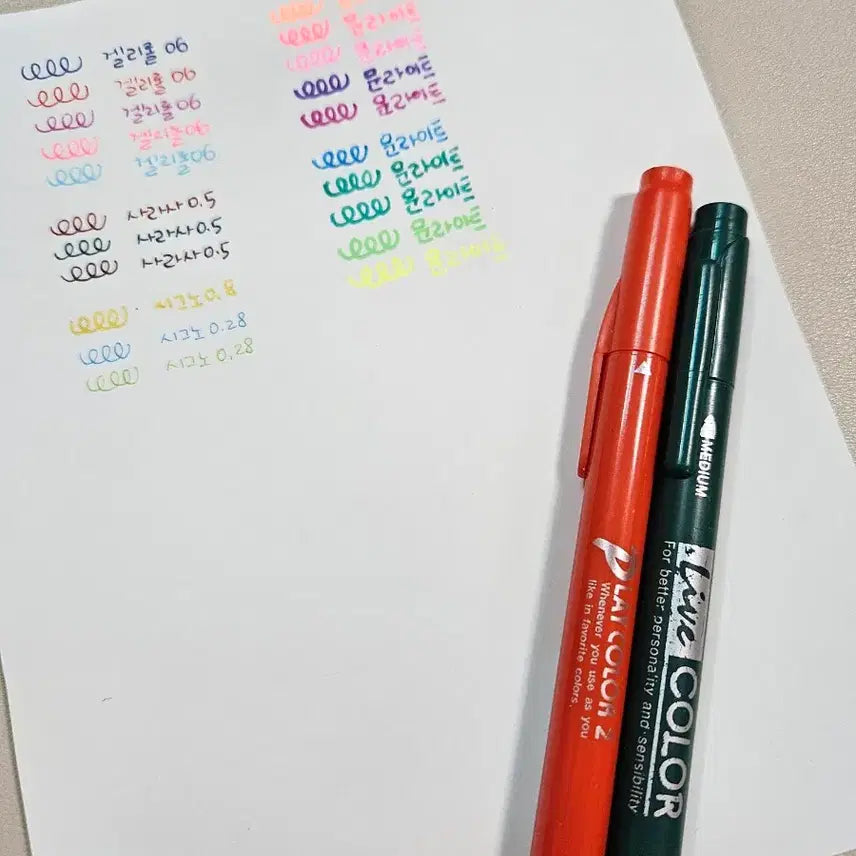 겔리롤 06
겔리롤 06
겔리롤 06
겔리롤 06
겔리롤 06
사라사 0.5
사라사 0.5
사라사 0.5
시그노 0.8
시그노 0.28
시그노 0.28
문라이트
문라이트
문라이트
문라이트
문라이트
문라이트
문라이트
문라이트
문라이트
PLAY COLOR 2
Whenever you use as you
like in favorite colors.
MEDIUM
Live COLOR
For better personality and sensibility